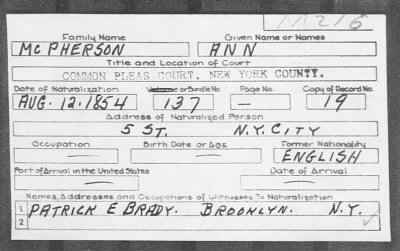 M216
Family Name Given Name or Names
MCPHERSON ANN
Title and Location of Court
COMMON PLEAS COURT, NEW YORK COUNTY.
Date of Naturalization Volume or Bundle No. Page No. Copy of Record No.
AUG. 12. 1854 137 — 19
Address of Naturalized Person
5 ST. N.Y. CITY
Occupation Birth Date or Age Former Nationality
— — ENGLISH
Port of Arrival in the United States Date of Arrival
— —
Names, Addresses and Occupations of Witnesses To Naturalization
1 PATRICK E BRADY. BROOKLYN. N.Y.
2